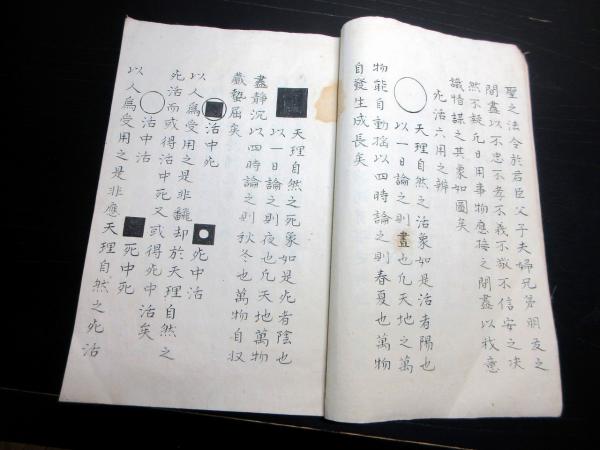 聖之法令於君臣父子夫婦兄弟朋友之
間盡以不忠不孝不義不敬不信安之决
然不疑凡日用事物應接之間盡以我意
識情謀之其象如圖矣
死活六用之辨
天理自然之活象如是活者陽也
以一日論之則晝也凡天地之萬
物能自動搖以四時論之則春夏也萬物
自發生成長矣
天理自然之死象如是死者陰也
以一日論之則夜也凡天地萬物
盡靜沉以四時論之則秋冬也萬物自収
藏蟄屈矣
活中死
死中活
以人爲受用之是非飜却於天理自然之
死活而或得活中死又或得死中活矣
活中活
死中死
以人爲受用之是非應天理自然之死活